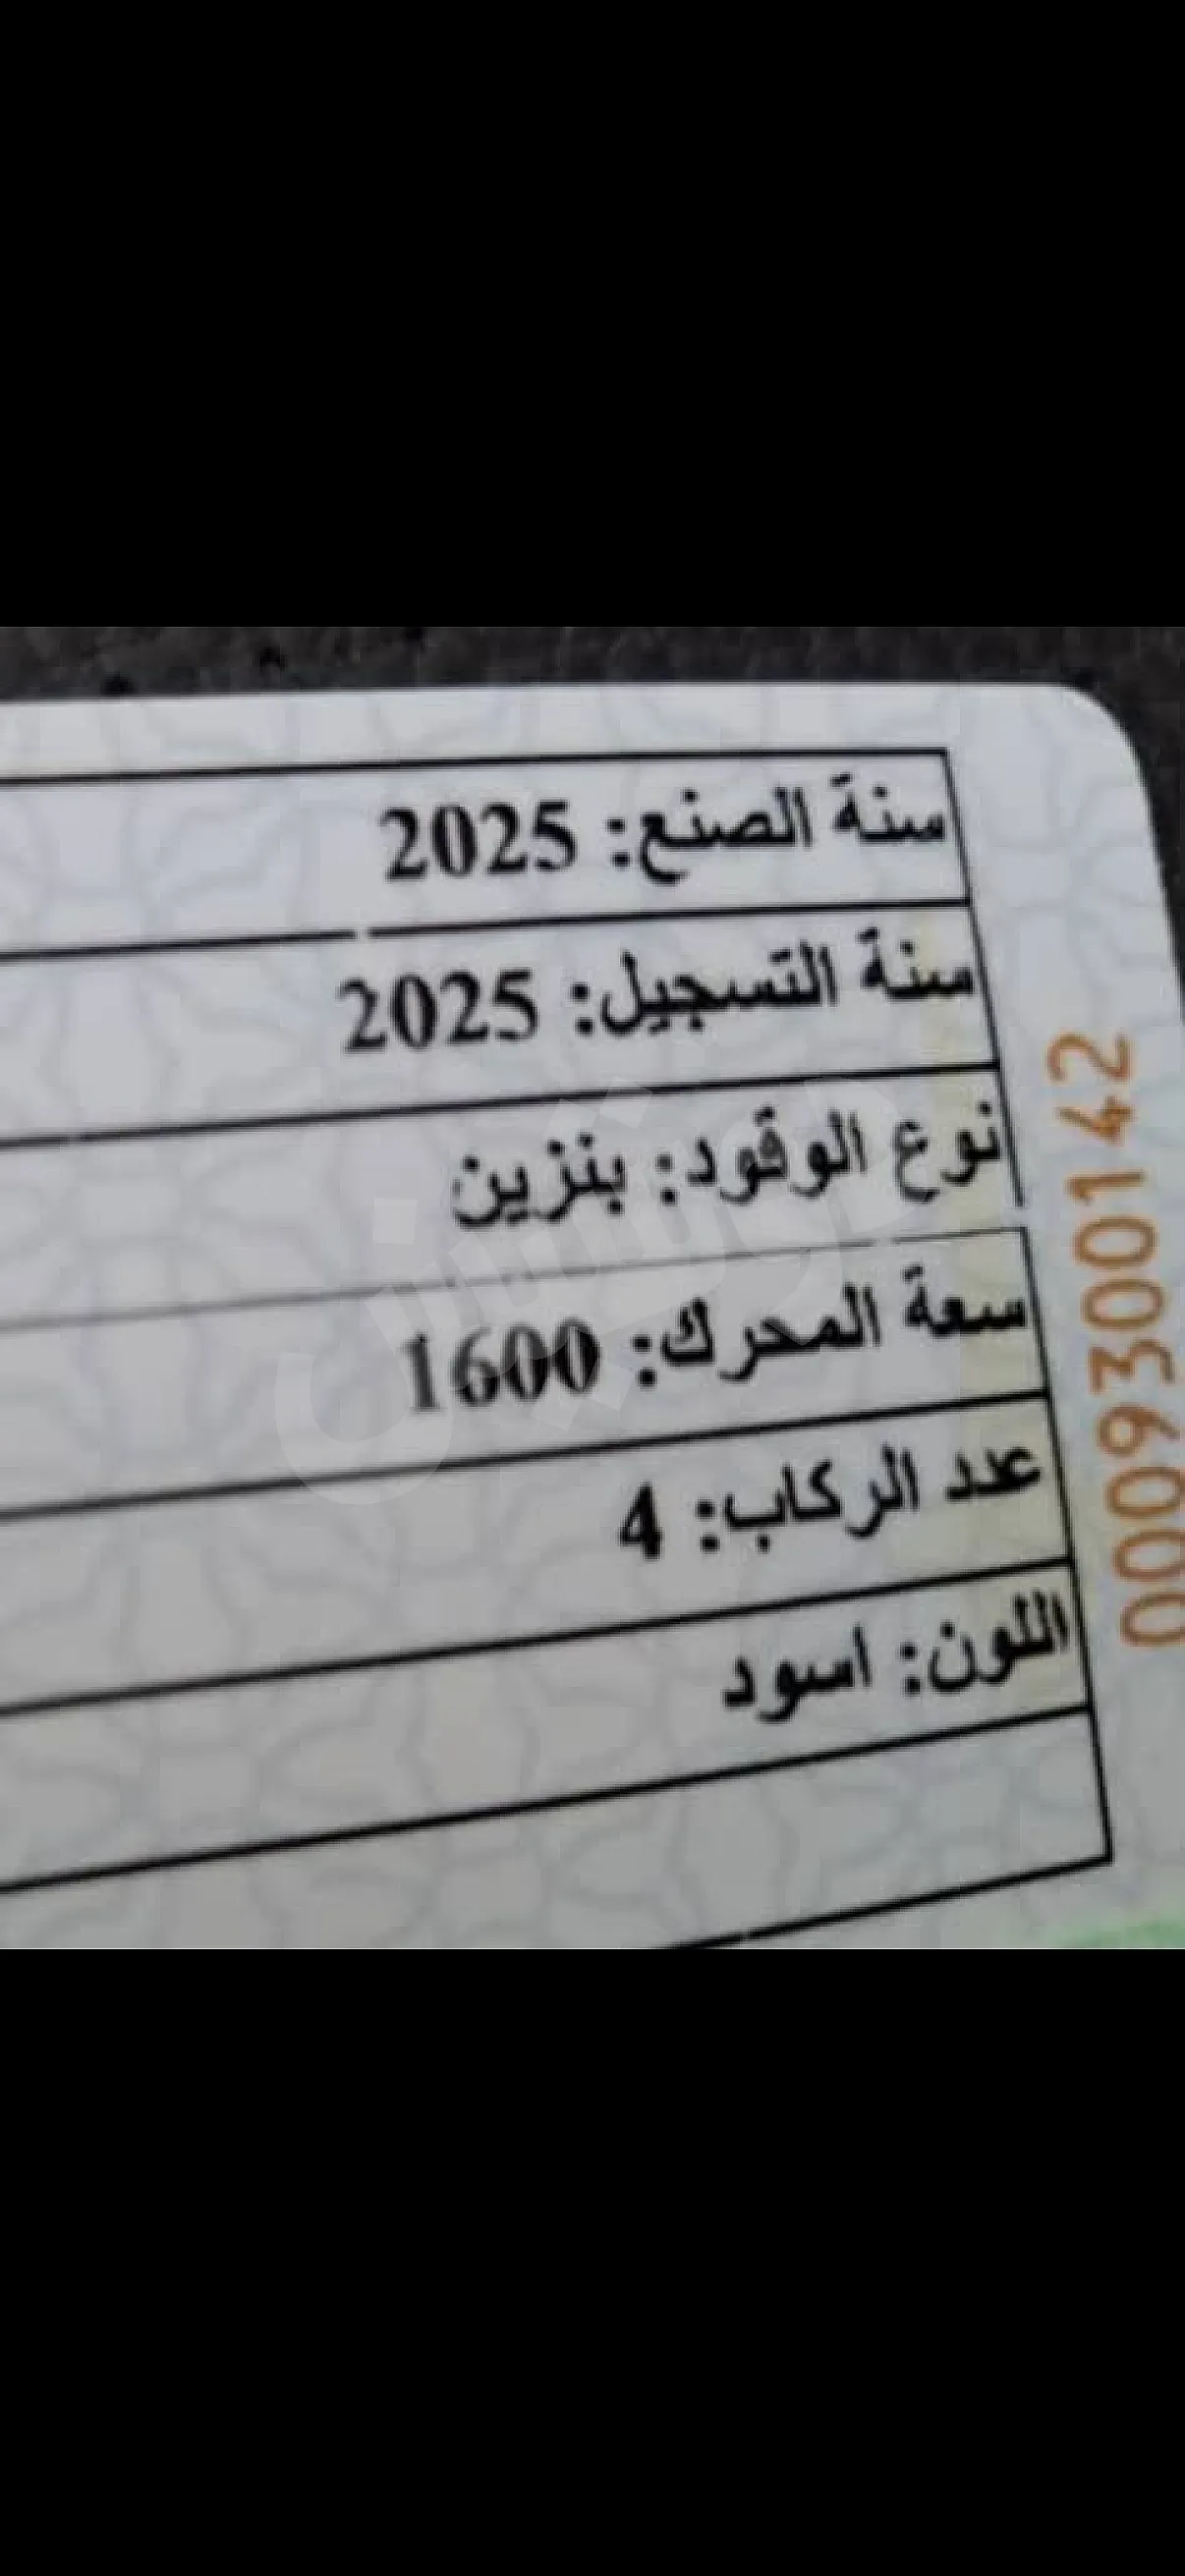 سنة الصنع: 2025
سنة التسجيل: 2025
نوع الوقود: بنزين
سعة المحرك: 1600
عدد الركاب: 4
اللون: اسود
0009300142